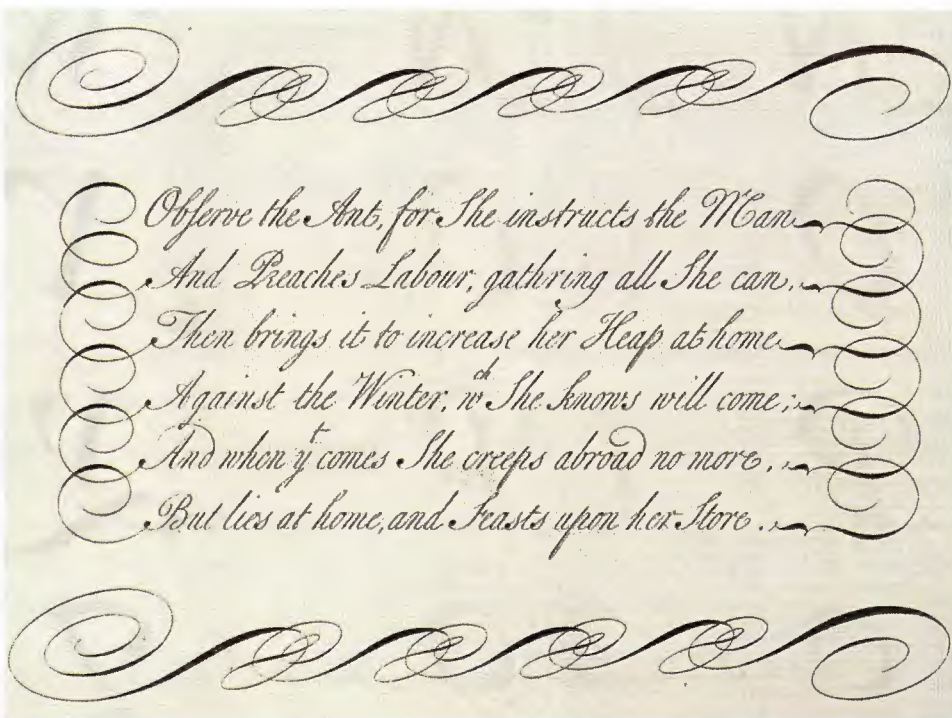 Obſerve the Ant, for She instructs the Man
And Preaches Labour, gathring all She can,
Then brings it to increase her Heap at home
Against the Winter, wch She knows will come;
And when yt comes She creeps abroad no more,
But lies at home, and Feasts upon her Store.